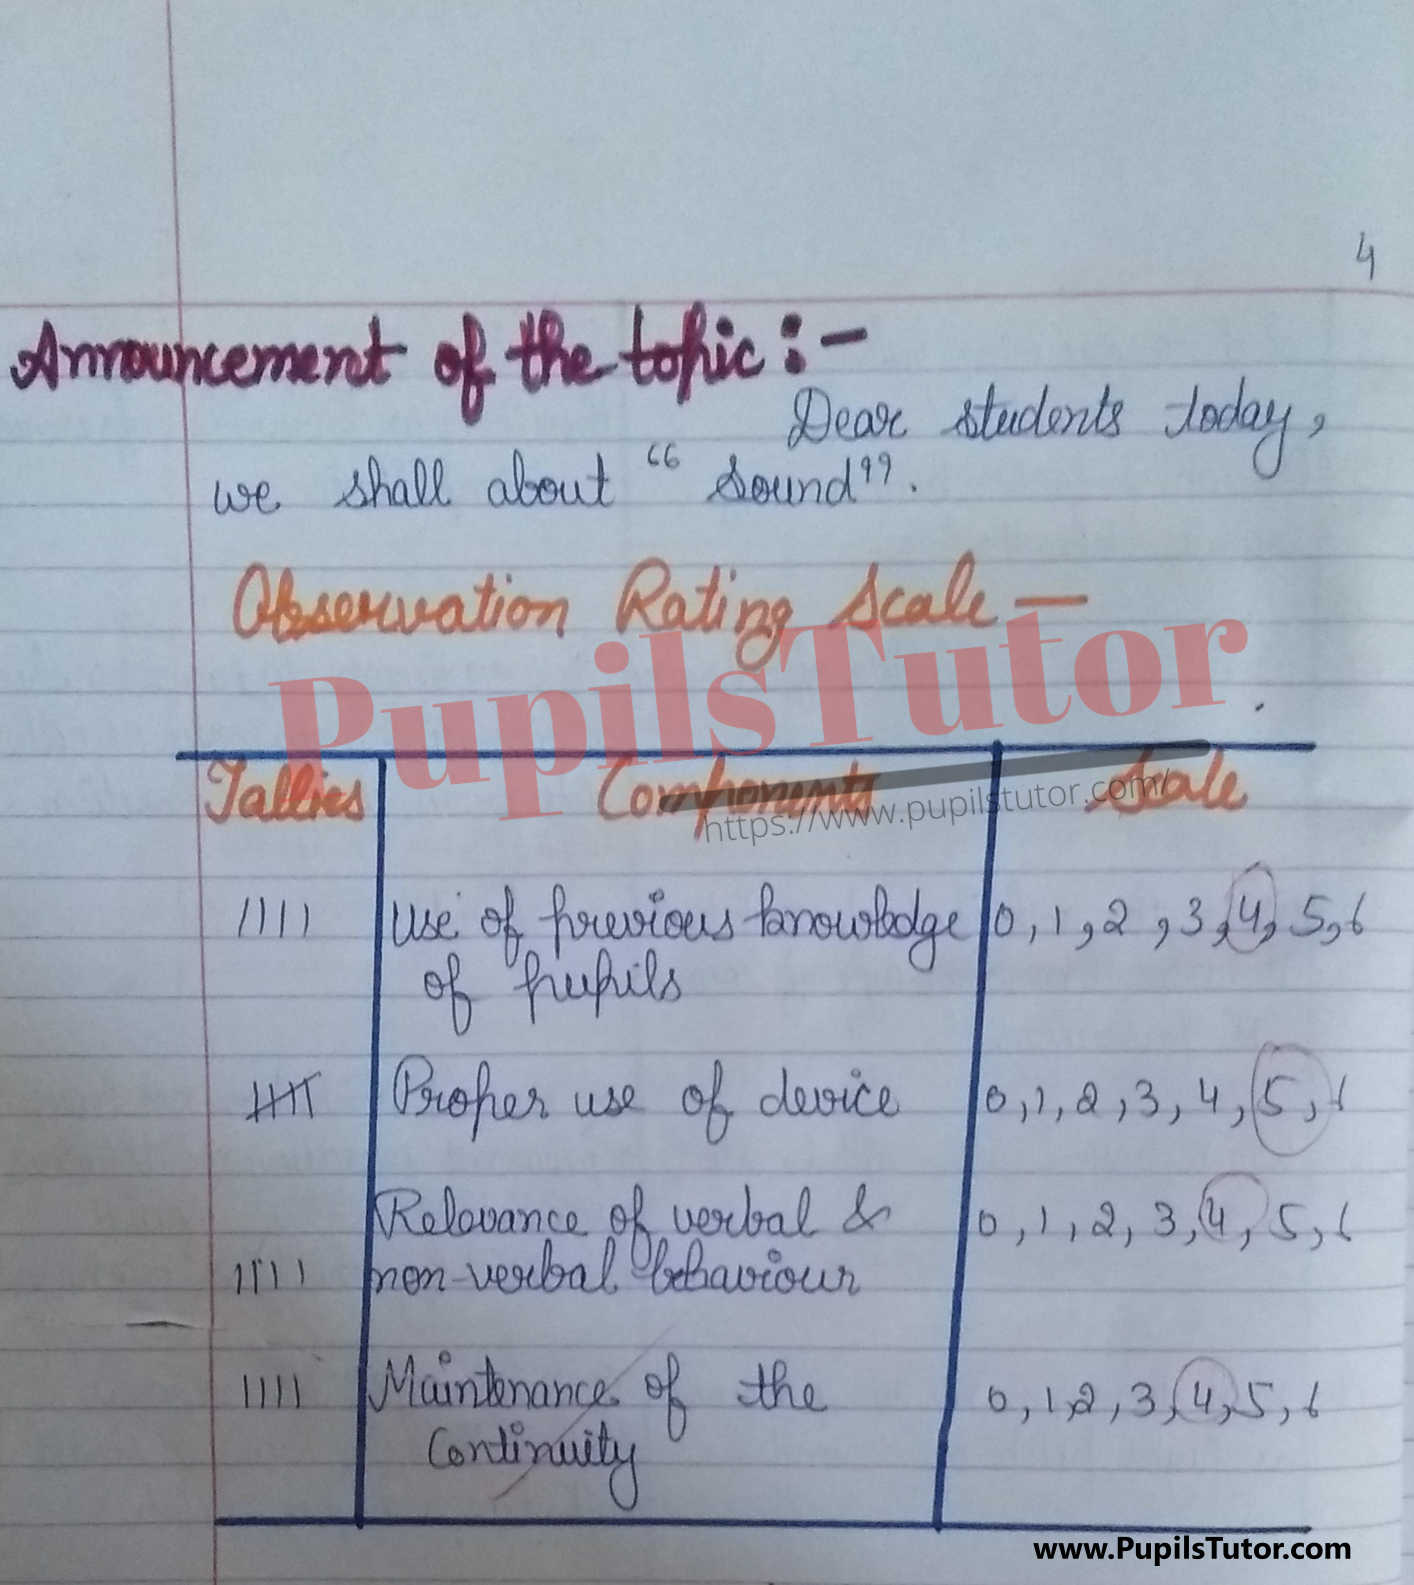 4
Announcement of the topic :-
Dear students today,
we shall about "Sound".
Observation Rating Scale —
PupilsTutor
Tallies Components Scale
https://www.pupilstutor.com/
|||| Use of previous knowledge 0, 1, 2, 3, 4, 5, 6
of pupils
 Proper use of device 0, 1, 2, 3, 4, 5, 6
Relevance of verbal & 0, 1, 2, 3, 4, 5, 6
|||| non-verbal behaviour
|||| Maintenance of the 0, 1, 2, 3, 4, 5, 6
Continuity
www.PupilsTutor.com